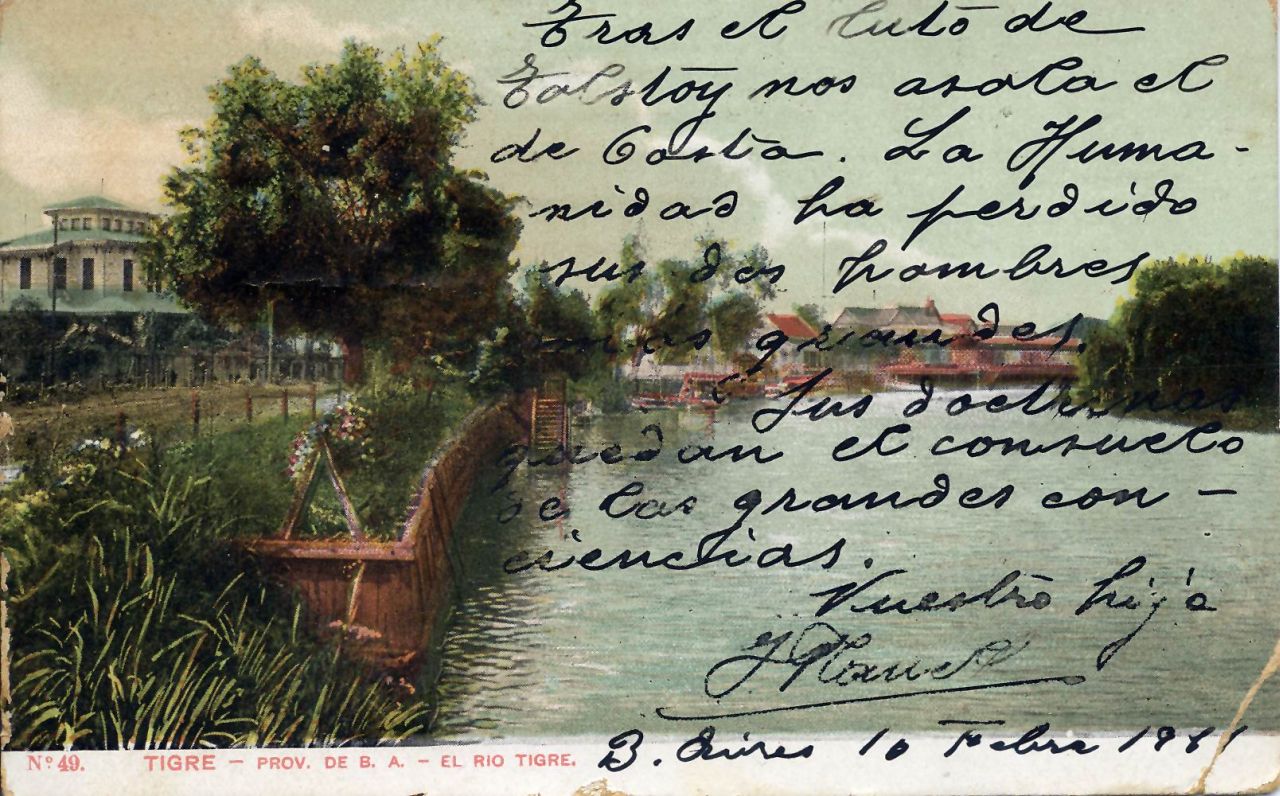 Tras el luto de
Tolstoy nos asola el
de Costa. La Huma-
nidad ha perdido
sus dos hombres
mas grandes.
Sus doctrinas
quedan el consuelo
de las grandes con-
ciencias.
Vuestro hijo
B. Aires 10 Febre 1911
Nº 49. TIGRE - PROV. DE B. A. - EL RIO TIGRE.